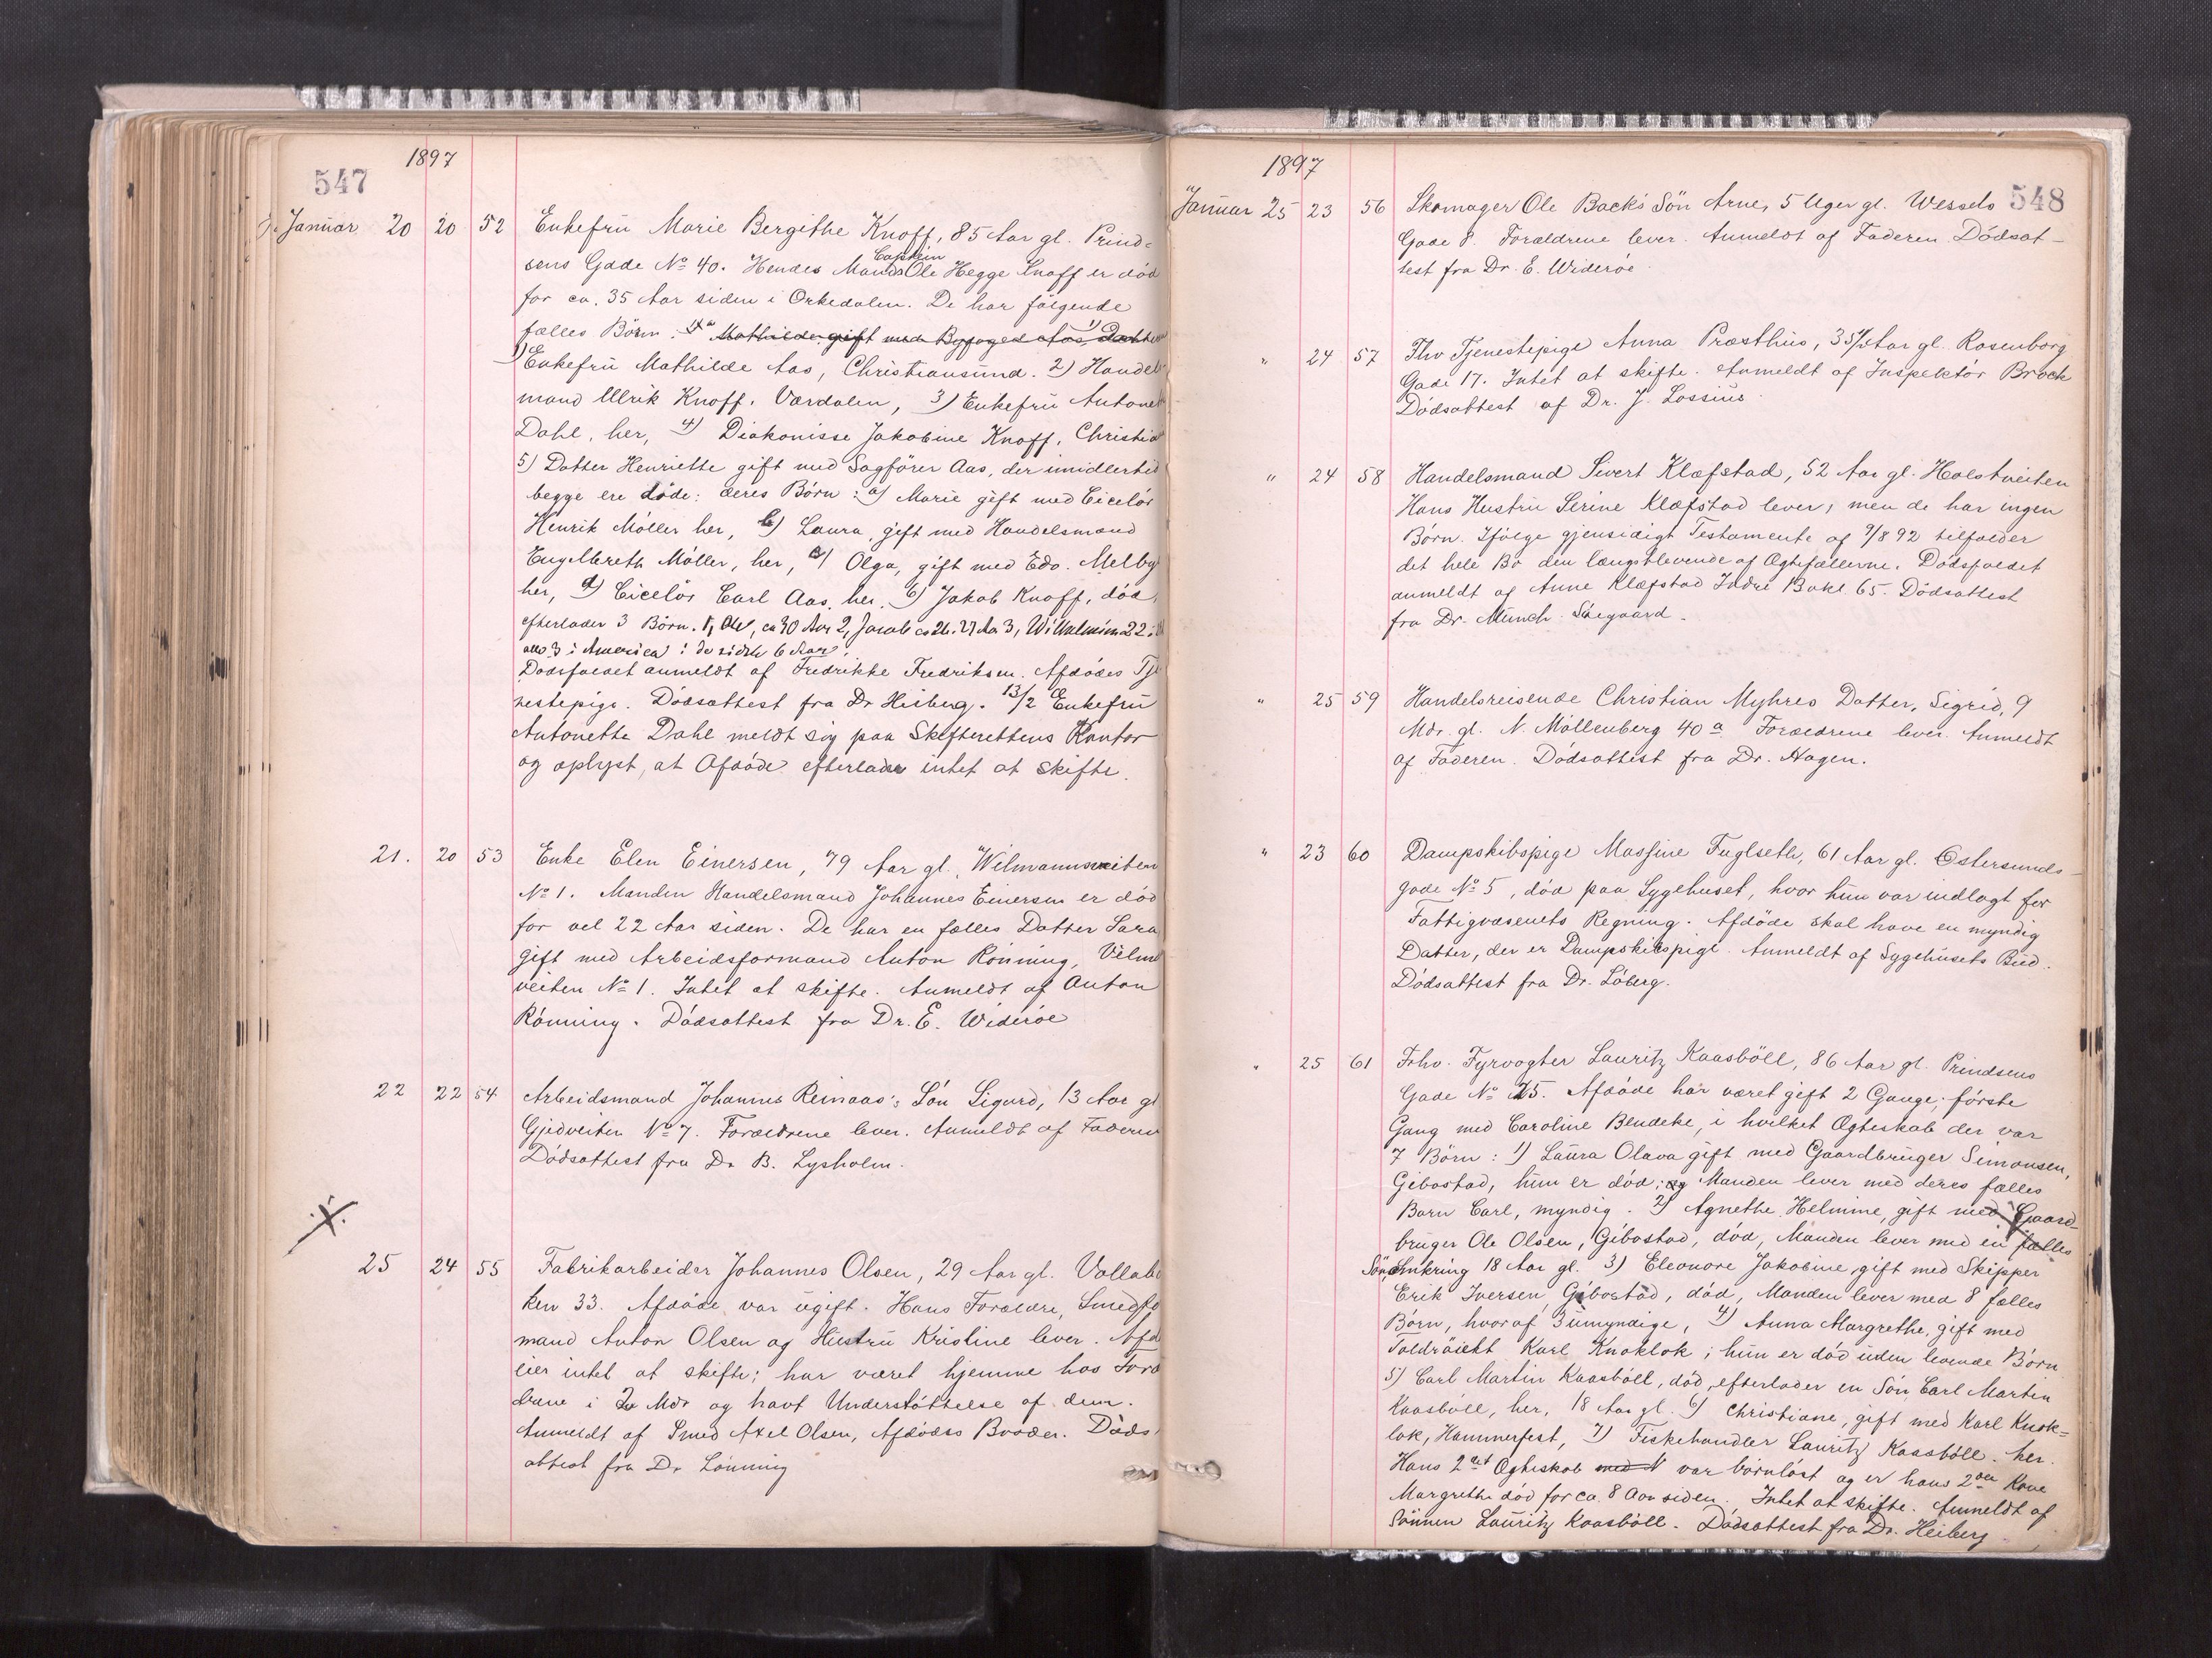 547
1897
Januar 20 20 52 Enkefru Marie Bergithe Knoff, 85 Aar gl. Prind=
Captein
sens Gade No 40. Hendes Mand Ole Hegge Knoff er död
for ca. 35 Aar siden i Orkedalen. De har fölgende
fælles Börn: Mathilde gift med Byfoged Aas, Datter
1) Enkefru Mathilde Aas, Christiansund. 2) Handels
mand Ulrik Knoff. Værdalen, 3) Enkefru Antonet
Dahl, her, 4) Diakonisse Jakobine Knoff, Christia
5) Datter Henriette gift med Sagförer Aas, der imidlertid
begge ere döde: deres Börn: a) Marie gift med Cicelör
Henrik Möller her, b) Laura, gift med Handelsmand
Engelbreth Möller, her, c) Olga, gift med Edv. Melby
her, d) Cicelör Carl Aas, her. 6) Jakob Knoff, död,
efterlader 3 Börn. 1, Ole, ca 30 Aar 2, Jacob ca 26. 27 Aar 3, Wilhelmine 22
alle 3 i America i de sidste 6 Aar.
Dödsfaldet anmeldt af Fredrikke Fredriksen. Afdödes Tje
nestepige. Dödsattest fra Dr Heiberg. 13/2 Enkefru
Antonette Dahl meldt sig paa Skifterettens Kontor
og oplyst, at Afdöde efterlader intet at skifte.
21. 20 53 Enke Elen Einersen, 79 Aar gl., Wilmannsveiten
No 1. Manden Handelsmand Johannes Einersen er död
for vel 22 Aar siden. De har en fælles Datter Sara
gift med Arbeidsformand Anton Rönning, Vilm
veiten No 1. Intet at skifte. Anmeldt af Anton
Rönning. Dödsattest fra Dr. E. Wideröe
22 22 54 Arbeidsmand Johannes Reinaas's Sön Sigurd, 13 Aar gl
Gjedveiten No 7. Forældrene lever. Anmeldt af Faderen
Dödsattest fra Dr B. Lysholm.
25 24 55 Fabrikarbeider Johannes Olsen, 29 Aar gl. Vollaba
ken 33. Afdöde var ugift. Hans Forældre, Smedfo
mand Anton Olsen og Hustru Kristine lever. Afd
eier intet at skifte; har været hjemme hos Foræ
drene i 2 Mdr og havt Understöttelse af dem.
Anmeldt af Smed Axel Olsen, Afdödes Broder. Döds
attest fra Dr Lönning
1897
548
Januar 25 23 56 Skomager Ole Back's Sön Arne, 5 Uger gl. Wessels
Gade 8. Forældrene lever. Anmeldt af Faderen. Dödsat-
test fra Dr. E. Wideröe.
" 24 57 Fhv Tjenestepige Anna Præsthus, 35 1/2 Aar gl. Rosenborg
Gade 17. Intet at skifte. Anmeldt af Inspektör Brock
Dödsattest af Dr. J. Lossius.
" 24 58 Handelsmand Sivert Klæfstad, 52 Aar gl. Holstveiten
Hans Hustru Serine Klæfstad lever, men de har ingen
Börn. Ifölge gjensidigt Testamente af 9/8 92 tilfalder
det hele Bo den længstlevende af Ægtefællerne. Dödsfaldet
anmeldt af Anne Klæfstad Indre Bakl. 65. Dödsattest
fra Dr. Münch Söegaard.
" 25 59 Handelsreisende Christian Myhres Datter, Sigrid, 9
Mdr. gl. N. Möllenberg 40 a. Forældrene lever. Anmeldt
af Faderen. Dödsattest fra Dr. Hagen.
" 23 60 Dampskibspige Massine Fuglseth, 61 Aar gl. Östersunds-
gade No 5, död paa Sygehuset, hvor hun var indlagt for
Fattigvæsenets Regning. Afdöde skal have en myndig
Datter, der er Dampskibspige. Anmeldt af Sygehusets Bud.
Dödsattest fra Dr. Löberg.
" 25 61 Fhv. Fyrvogter Lauritz Kaasböll, 86 Aar gl. Prindsens
Gade No 25. Afdöde har været gift 2 Gange; förste
Gang med Caroline Bendeke, i hvilket Ægteskab der var
7 Börn: 1) Laura Olava gift med Gaardbruger Simonsen,
Gibostad, hun er död; og Manden lever med deres fælles
Barn Carl, myndig. 2) Agnethe Helmine, gift med Gaard-
bruger Ole Olsen, Gibostad, död, Manden lever med en fælles
Sön, omkring 18 Aar gl. 3) Eleonore Jakobine gift med Skipper
Erik Iversen, Gibostad, död, Manden lever med 8 fælles
Börn, hvoraf 3 umyndige, 4) Anna Margrethe, gift med
Toldröiert Karl Knoklok; hun er död uden levende Börn
5) Carl Martin Kaasböll, död, efterlader en Sön Carl Martin
Kaasböll, her, 18 Aar gl. 6) Christiane, gift med Karl Knok=
lok, Hammerfest, 7) Fiskehandler Lauritz Kaasböll. her.
Hans 2det Ægteskab med N var börnlöst og er hans 2den Kone
Margrethe död for ca. 8 Aar siden. Intet at skifte. Anmeldt af
Sönnen Lauritz Kaasböll. Dödsattest fra Dr. Heiberg